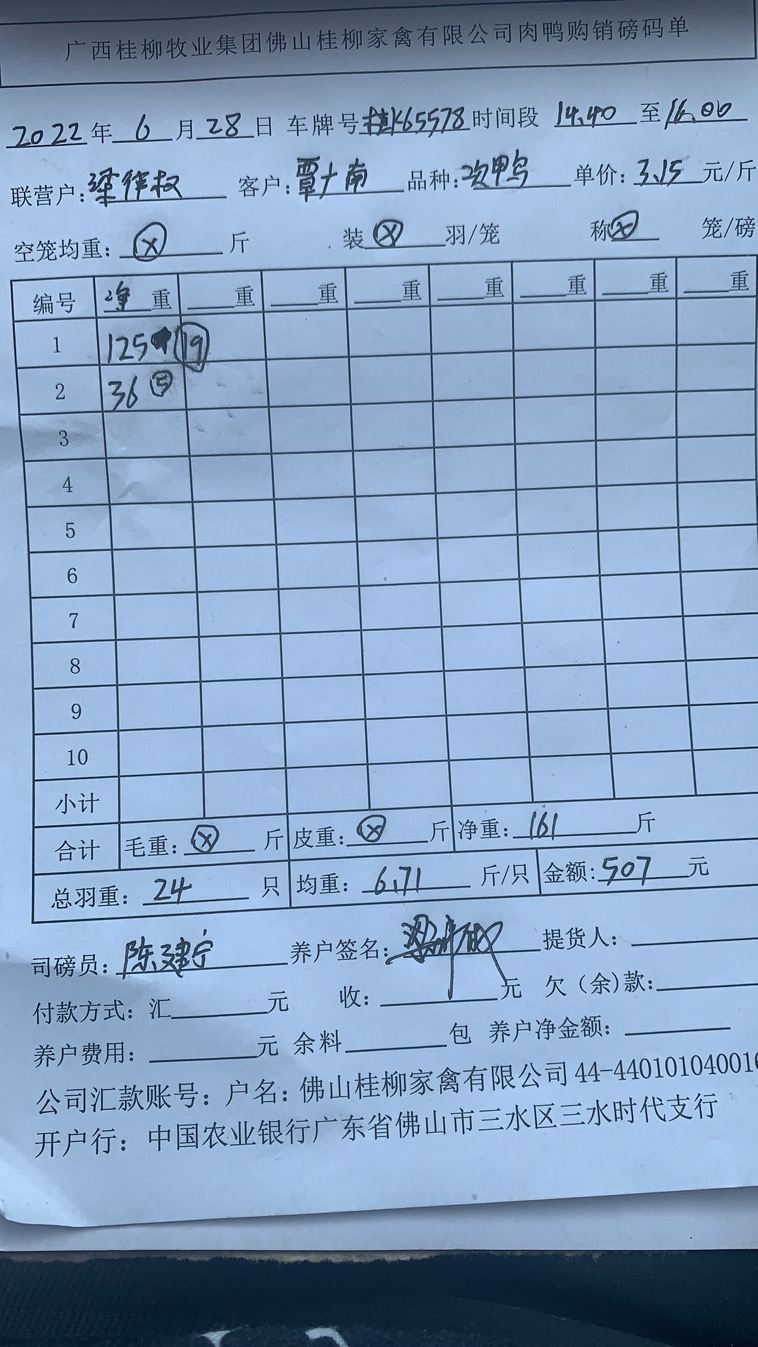 广西桂柳牧业集团佛山桂柳家禽有限公司肉鸭购销磅码单
2022年 6 月 28 日 车牌号桂K65578时间段 14.40 至 16.00
联营户: 客户:覃广南 品种:次鸭 单价:3.15 元/斤
空笼均重: ⓧ 斤 装 ⓧ 羽/笼 称 ⓧ 笼/磅
编号 净 重 重 重 重 重 重 重 重
1 125 ⑲
2 36 ⑤
3
4
5
6
7
8
9
10
小计
合计 毛重: ⓧ 斤 皮重: ⓧ 斤 净重: 161 斤
总羽重: 24 只 均重: 6.71 斤/只 金额:507 元
司磅员:陈建宁 养户签名: 提货人:
付款方式: 汇 元 收: 元 欠（余）款:
养户费用: 元 余料 包 养户净金额:
公司汇款账号: 户名: 佛山桂柳家禽有限公司 44-44010104001
开户行: 中国农业银行广东省佛山市三水区三水时代支行